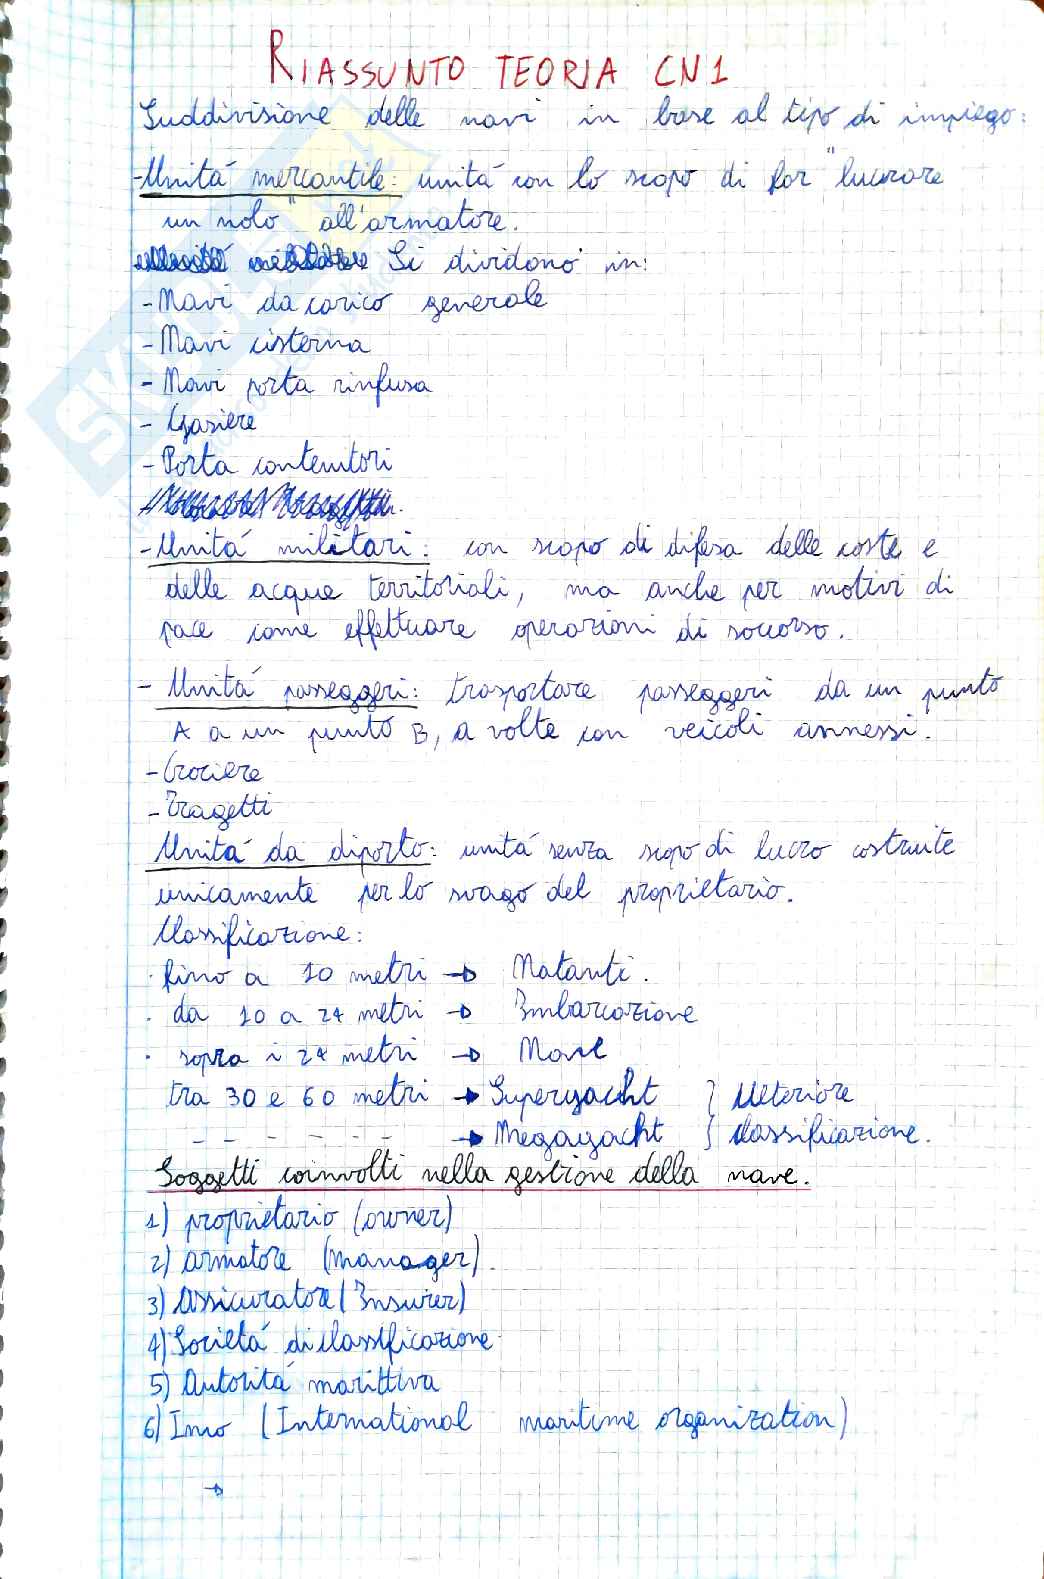 RIASSUNTO TEORIA CN1
Suddivisione delle navi in base al tipo di impiego:
-Unità mercantile: unità con lo scopo di far "lucrare
un nolo" all'armatore.
Si dividono in:
- Navi da carico generale
- Navi cisterna
- Navi porta rinfusa
- Gasiere
- Porta contenitori
- Unità militari: con scopo di difesa delle coste e
delle acque territoriali, ma anche per motivi di
pace come effettuare operazioni di soccorso.
- Unità passeggeri: trasportare passeggeri da un punto
A a un punto B, a volte con veicoli annessi.
- Crociere
- Tragetti
Unità da diporto: unità senza scopo di lucro costruite
unicamente per lo svago del proprietario.
Classificazione:
· fino a 10 metri → Natanti.
· da 10 a 24 metri → Imbarcazione
· sopra i 24 metri → Nave
tra 30 e 60 metri → Superyacht } Ulteriore
- - - - - - → Megayacht } classificazione.
Soggetti coinvolti nella gestione della nave.
1) proprietario (owner)
2) armatore (manager).
3) Assicuratore (Insurer)
4) Società di classificazione
5) Autorità marittiva
6) Imo (International maritime organization)
→